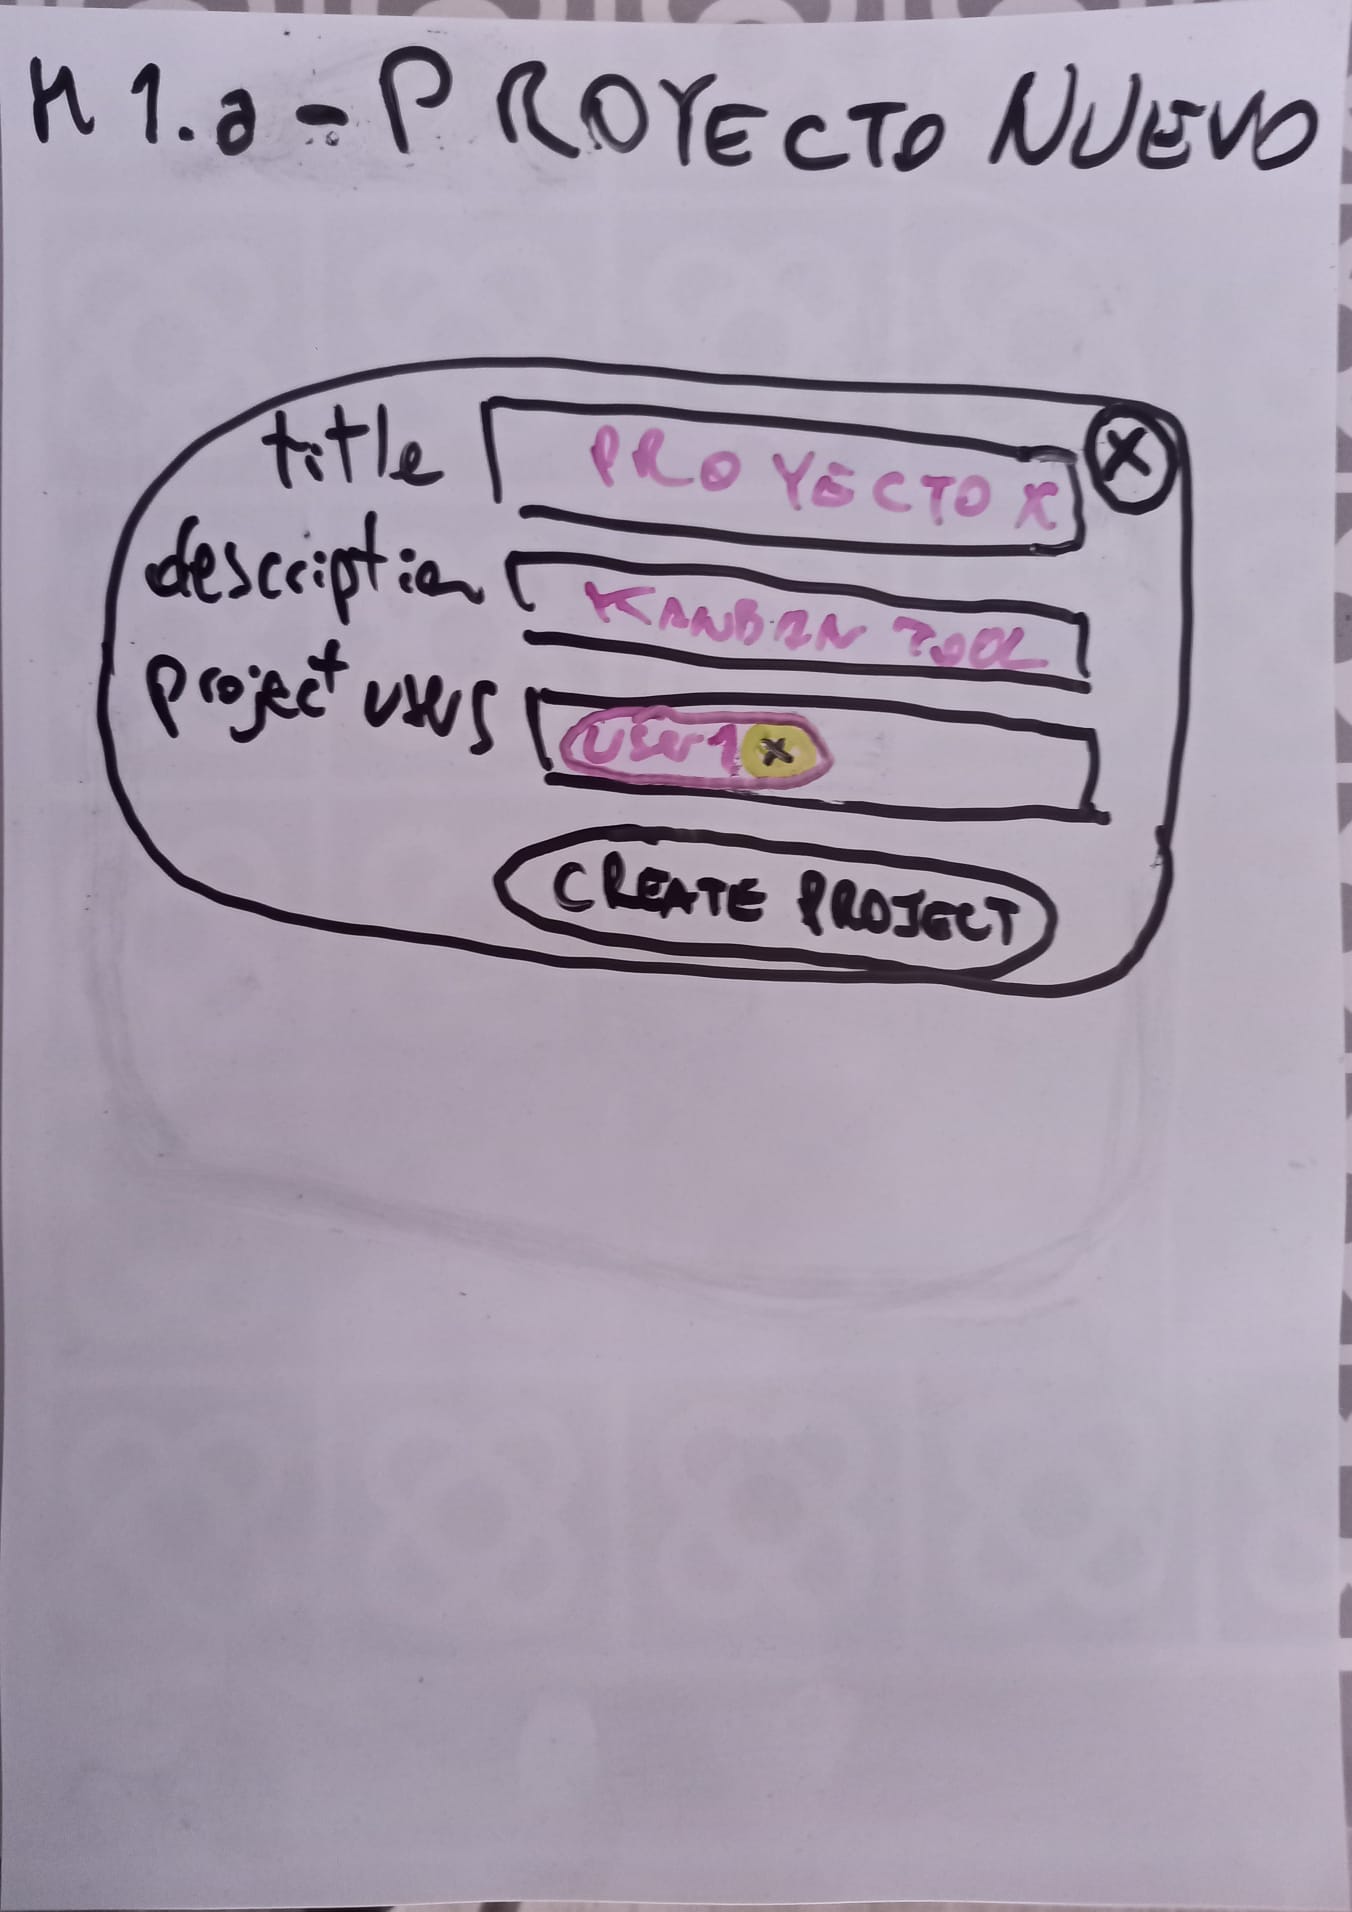 H 1.a - PROYECTO NUEVO
title PROYECTO X X
description KANBAN TOOL
project users user1 x
CREATE PROJECT